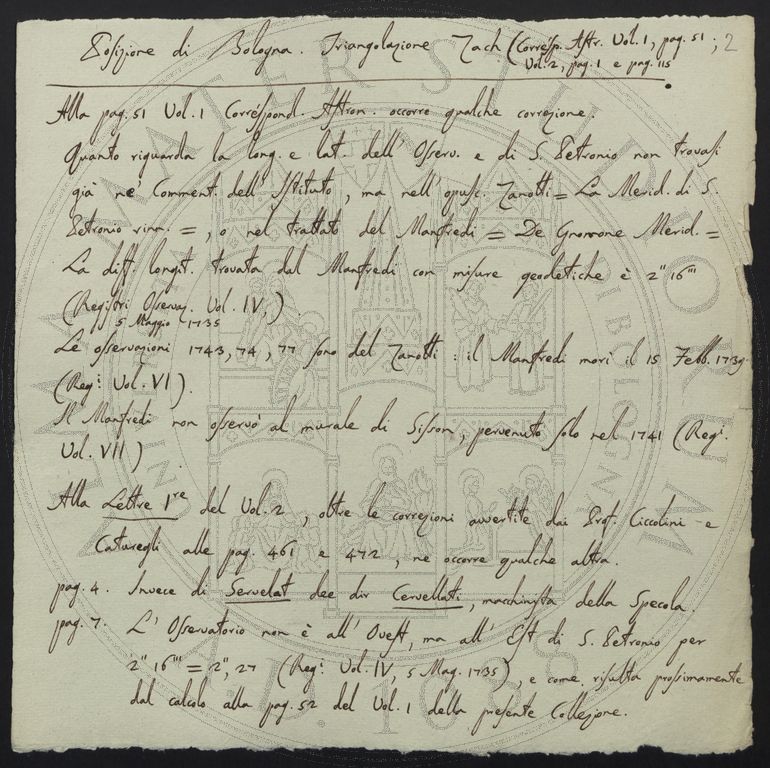 Posizione di Bologna. Triangolazione Zach (Corrésp. Astr. Vol. 1, pag. 51; 2
Vol. 2, pag. 1 e pag. 115
Alla pag. 51 Vol. 1 Corréspond. Astron. occorre qualche correzione.
Quanto riguarda la long. e lat. dell' Osserv. e di S. Petronio non trovasi
già ne' Comment. dell' Istituto, ma nell' opusc. Zanotti = La Merid. di S.
Petronio rinn. =, o nel trattato del Manfredi = De Gnomone Merid. =
La diff. longit. trovata dal Manfredi con misure geodetiche è 2" 16'''
(Registri Osservaz. Vol. IV,).
5 Maggio 1735
Le osservazioni 1743, 74, 77 sono del Zanotti: il Manfredi morì il 15 Febb. 1739.
(Reg.i Vol. VI).
Il Manfredi non osservò al murale di Sisson, pervenuto solo nel 1741 (Reg.i
Vol. VII).
Alla Lettre 1re del Vol. 2, oltre le correzioni avvertite dai Prof. Ciccolini e
Caturegli alle pag. 461 e 472, ne occorre qualche altra.
pag. 4. Invece di Servelat dee dir Cervellati, macchinista della Specola.
pag. 7. L' Osservatorio non è all' Ovest, ma all' Est di S. Petronio per
2" 16''' = 2", 27 (Reg.i Vol. IV, 5 Mag. 1735), e come risulta prossimamente
dal calcolo alla pag. 52 del Vol. 1 della presente Collezione.
ALMA MATER STUDIORUM
A.D. 1088